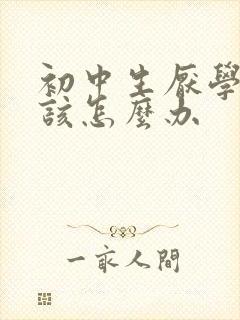 初中生厭學
該怎麼办
一家人間